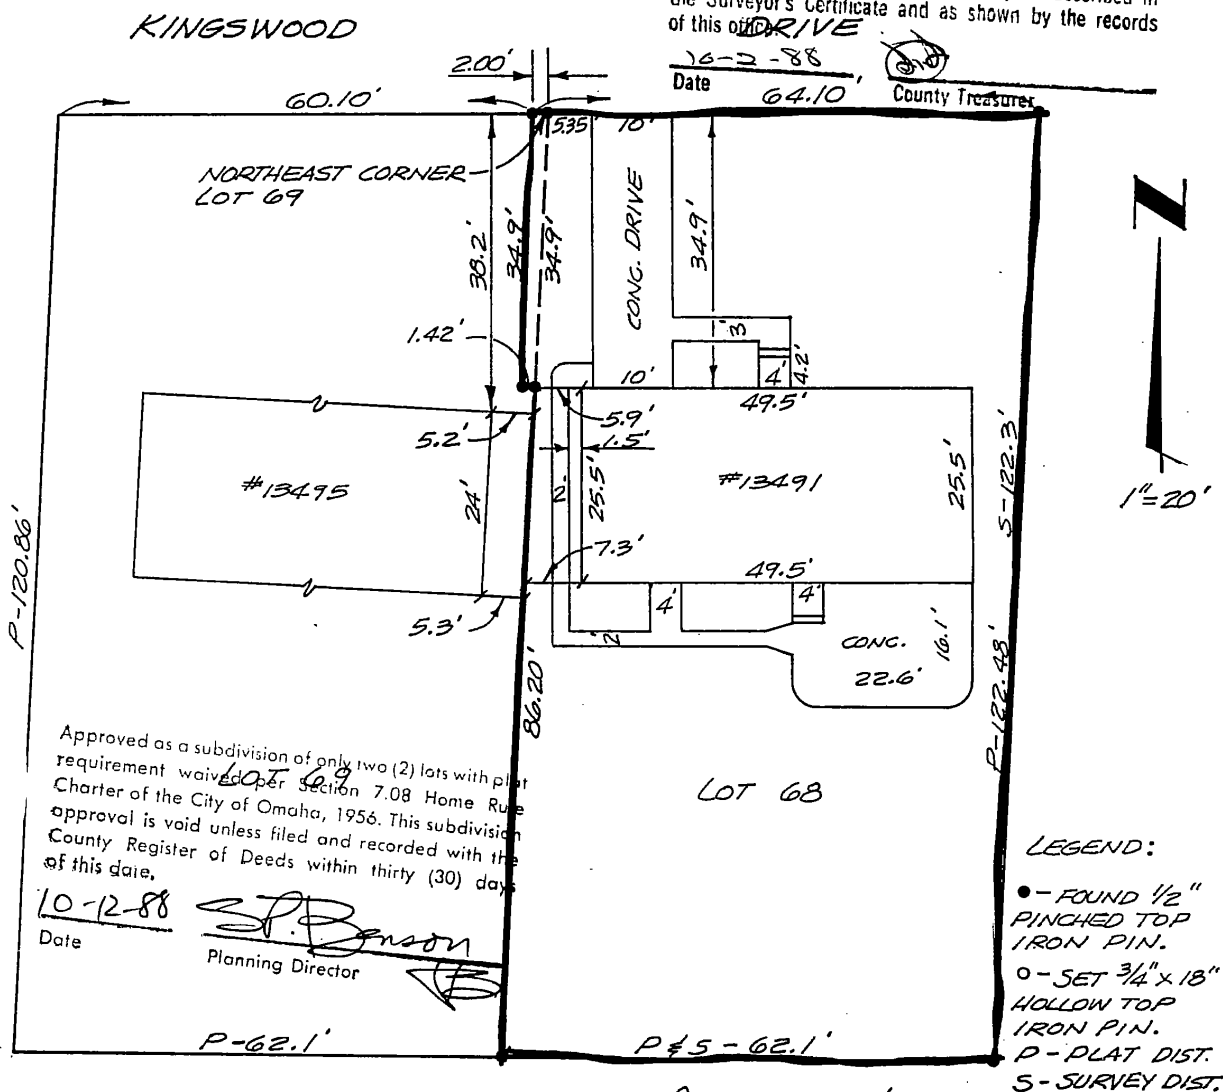 the Surveyor's Certificate and as shown by the records
of this office.
KINGSWOOD DRIVE
10-12-88
Date
County Treasurer
2.00'
60.10'
64.10'
5.35
10'
NORTHEAST CORNER
LOT 69
38.2'
34.9'
34.9'
CONC. DRIVE
34.9'
3'
1.42'
10'
4'
4.2'
49.5'
5.9'
5.2'
1.5'
#13495
24'
2'
25.5'
#13491
25.5'
S-122.3'
1"=20'
7.3'
49.5'
5.3'
4'
4'
2'
CONC.
16.1'
22.6'
P-120.86'
86.20'
P-122.48'
Approved as a subdivision of only two (2) lots with plat
requirement waived per Section 7.08 Home Rule
Charter of the City of Omaha, 1956. This subdivision
approval is void unless filed and recorded with the
County Register of Deeds within thirty (30) days
of this date.
LOT 69
LOT 68
10-12-88
Date
S.P. Benson
Planning Director
LEGEND:
●-FOUND 1/2"
PINCHED TOP
IRON PIN.
O-SET 3/4" x 18"
HOLLOW TOP
IRON PIN.
P-PLAT DIST.
S-SURVEY DIST.
P-62.1'
P&S-62.1'
N